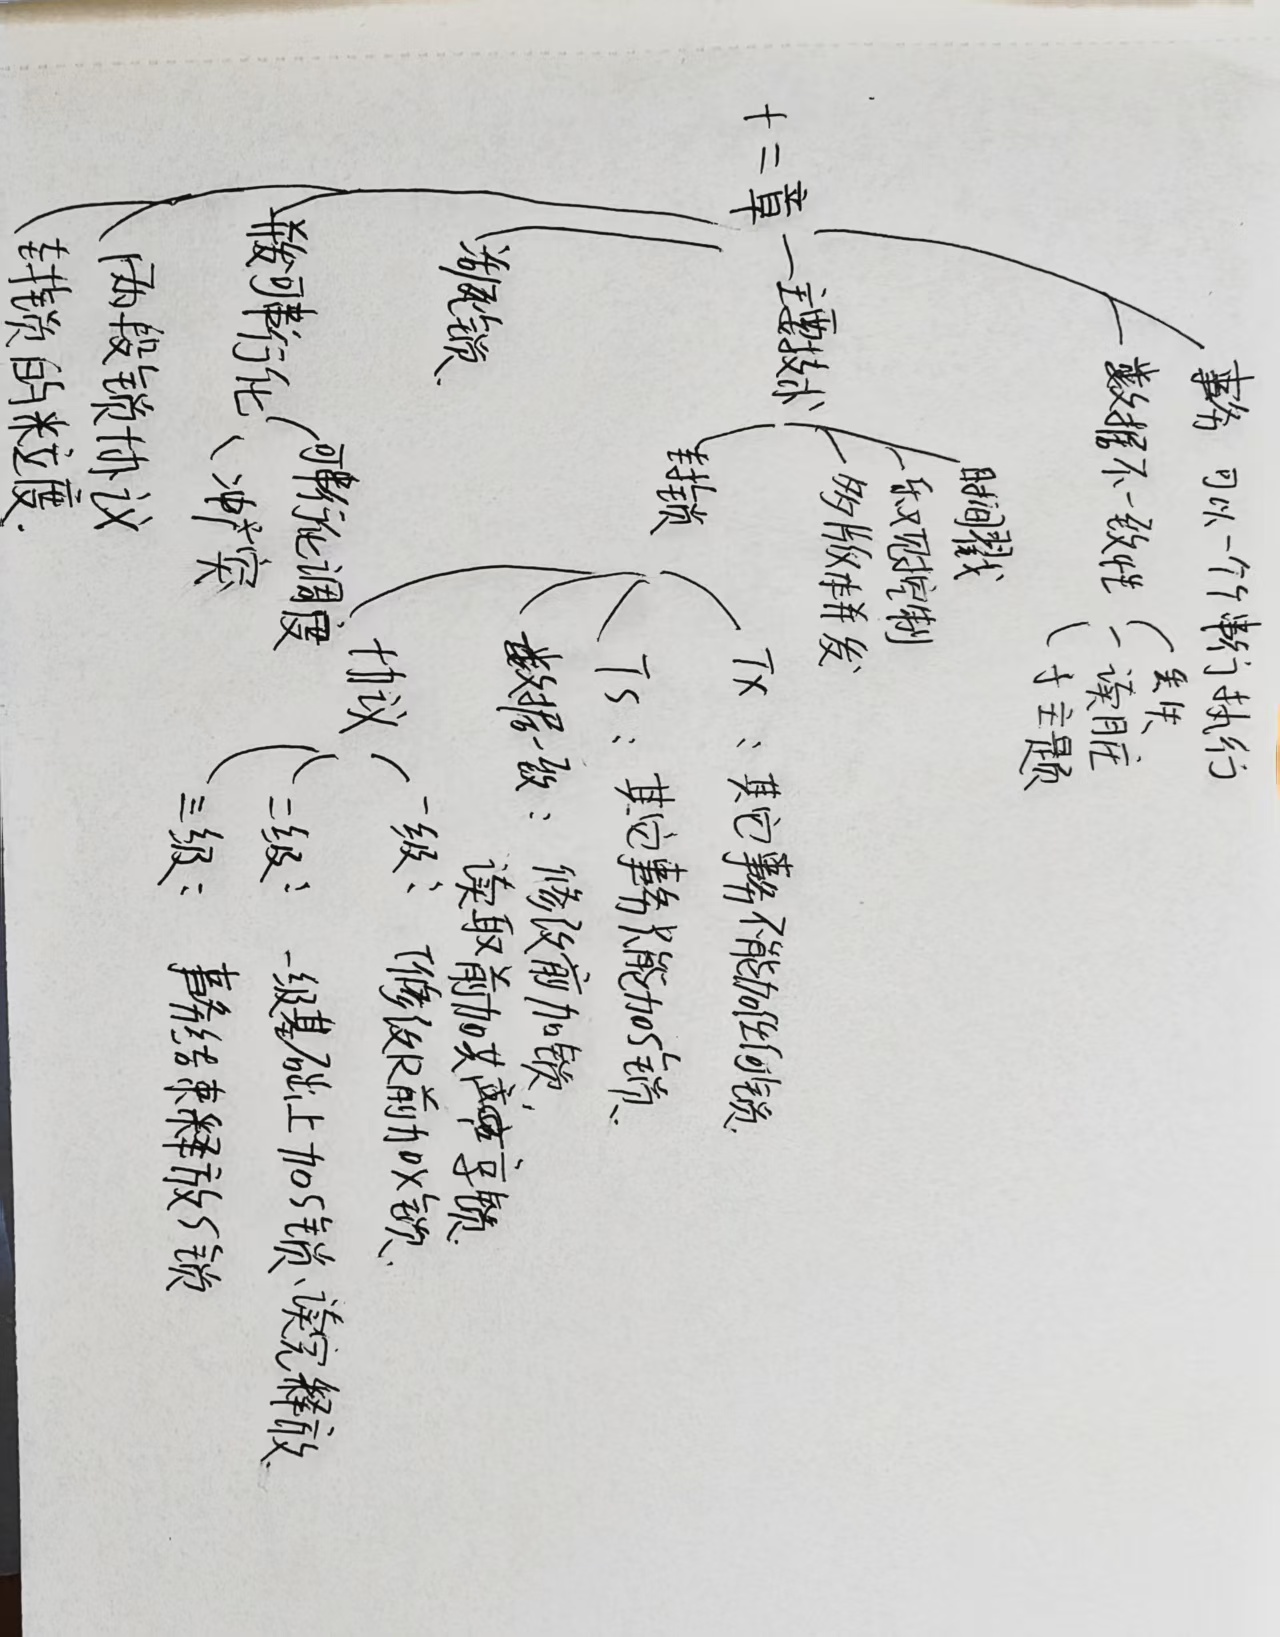 十二章
事务 可以一个个串行执行
数据不一致性
丢失
读脏
子主题
主要技术
时间戳
乐观控制
多版本并发
封锁
Tx：其它事务不能加任何锁.
Ts：其它事务只能加S锁.
数据一致：修改前加锁,
读取前加共享锁.
协议
一级：T修改R前加X锁.
二级：一级基础上加S锁、读完释放.
三级：事务结束释放S锁
活死锁.
并发可串行化
可串行化调度
冲突
两段锁协议
封锁的粒度.